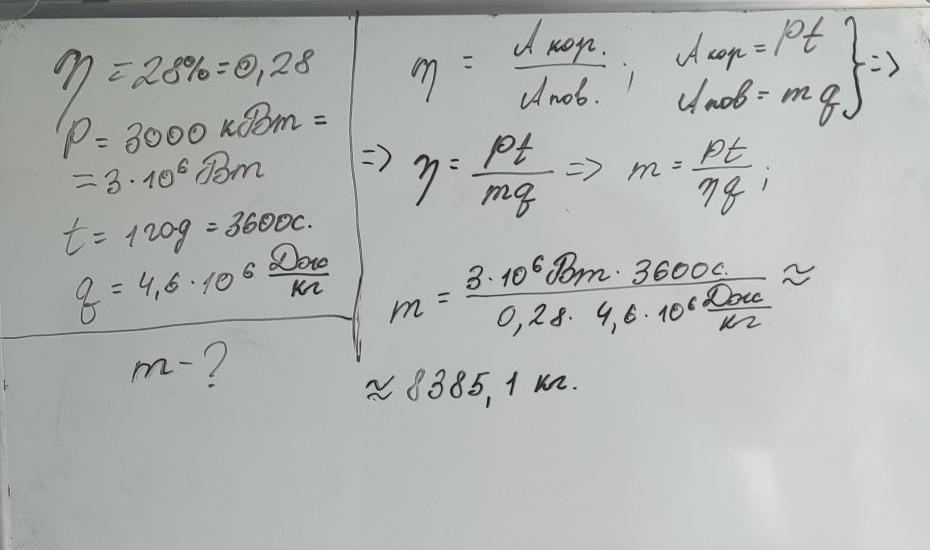 η = 28% = 0,28
P = 3000 кВт =
= 3 · 10⁶ Вт
t = 1 год = 3600с.
q = 4,6 · 10⁶ Дж/кг
m - ?
η = A кор. / A пов. ; A кор = Pt
A пов = mq } =>
=> η = Pt / mq => m = Pt / ηq ;
m = 3 · 10⁶ Вт · 3600с. / 0,28 · 4,6 · 10⁶ Дж/кг ≈
≈ 8385,1 кг.